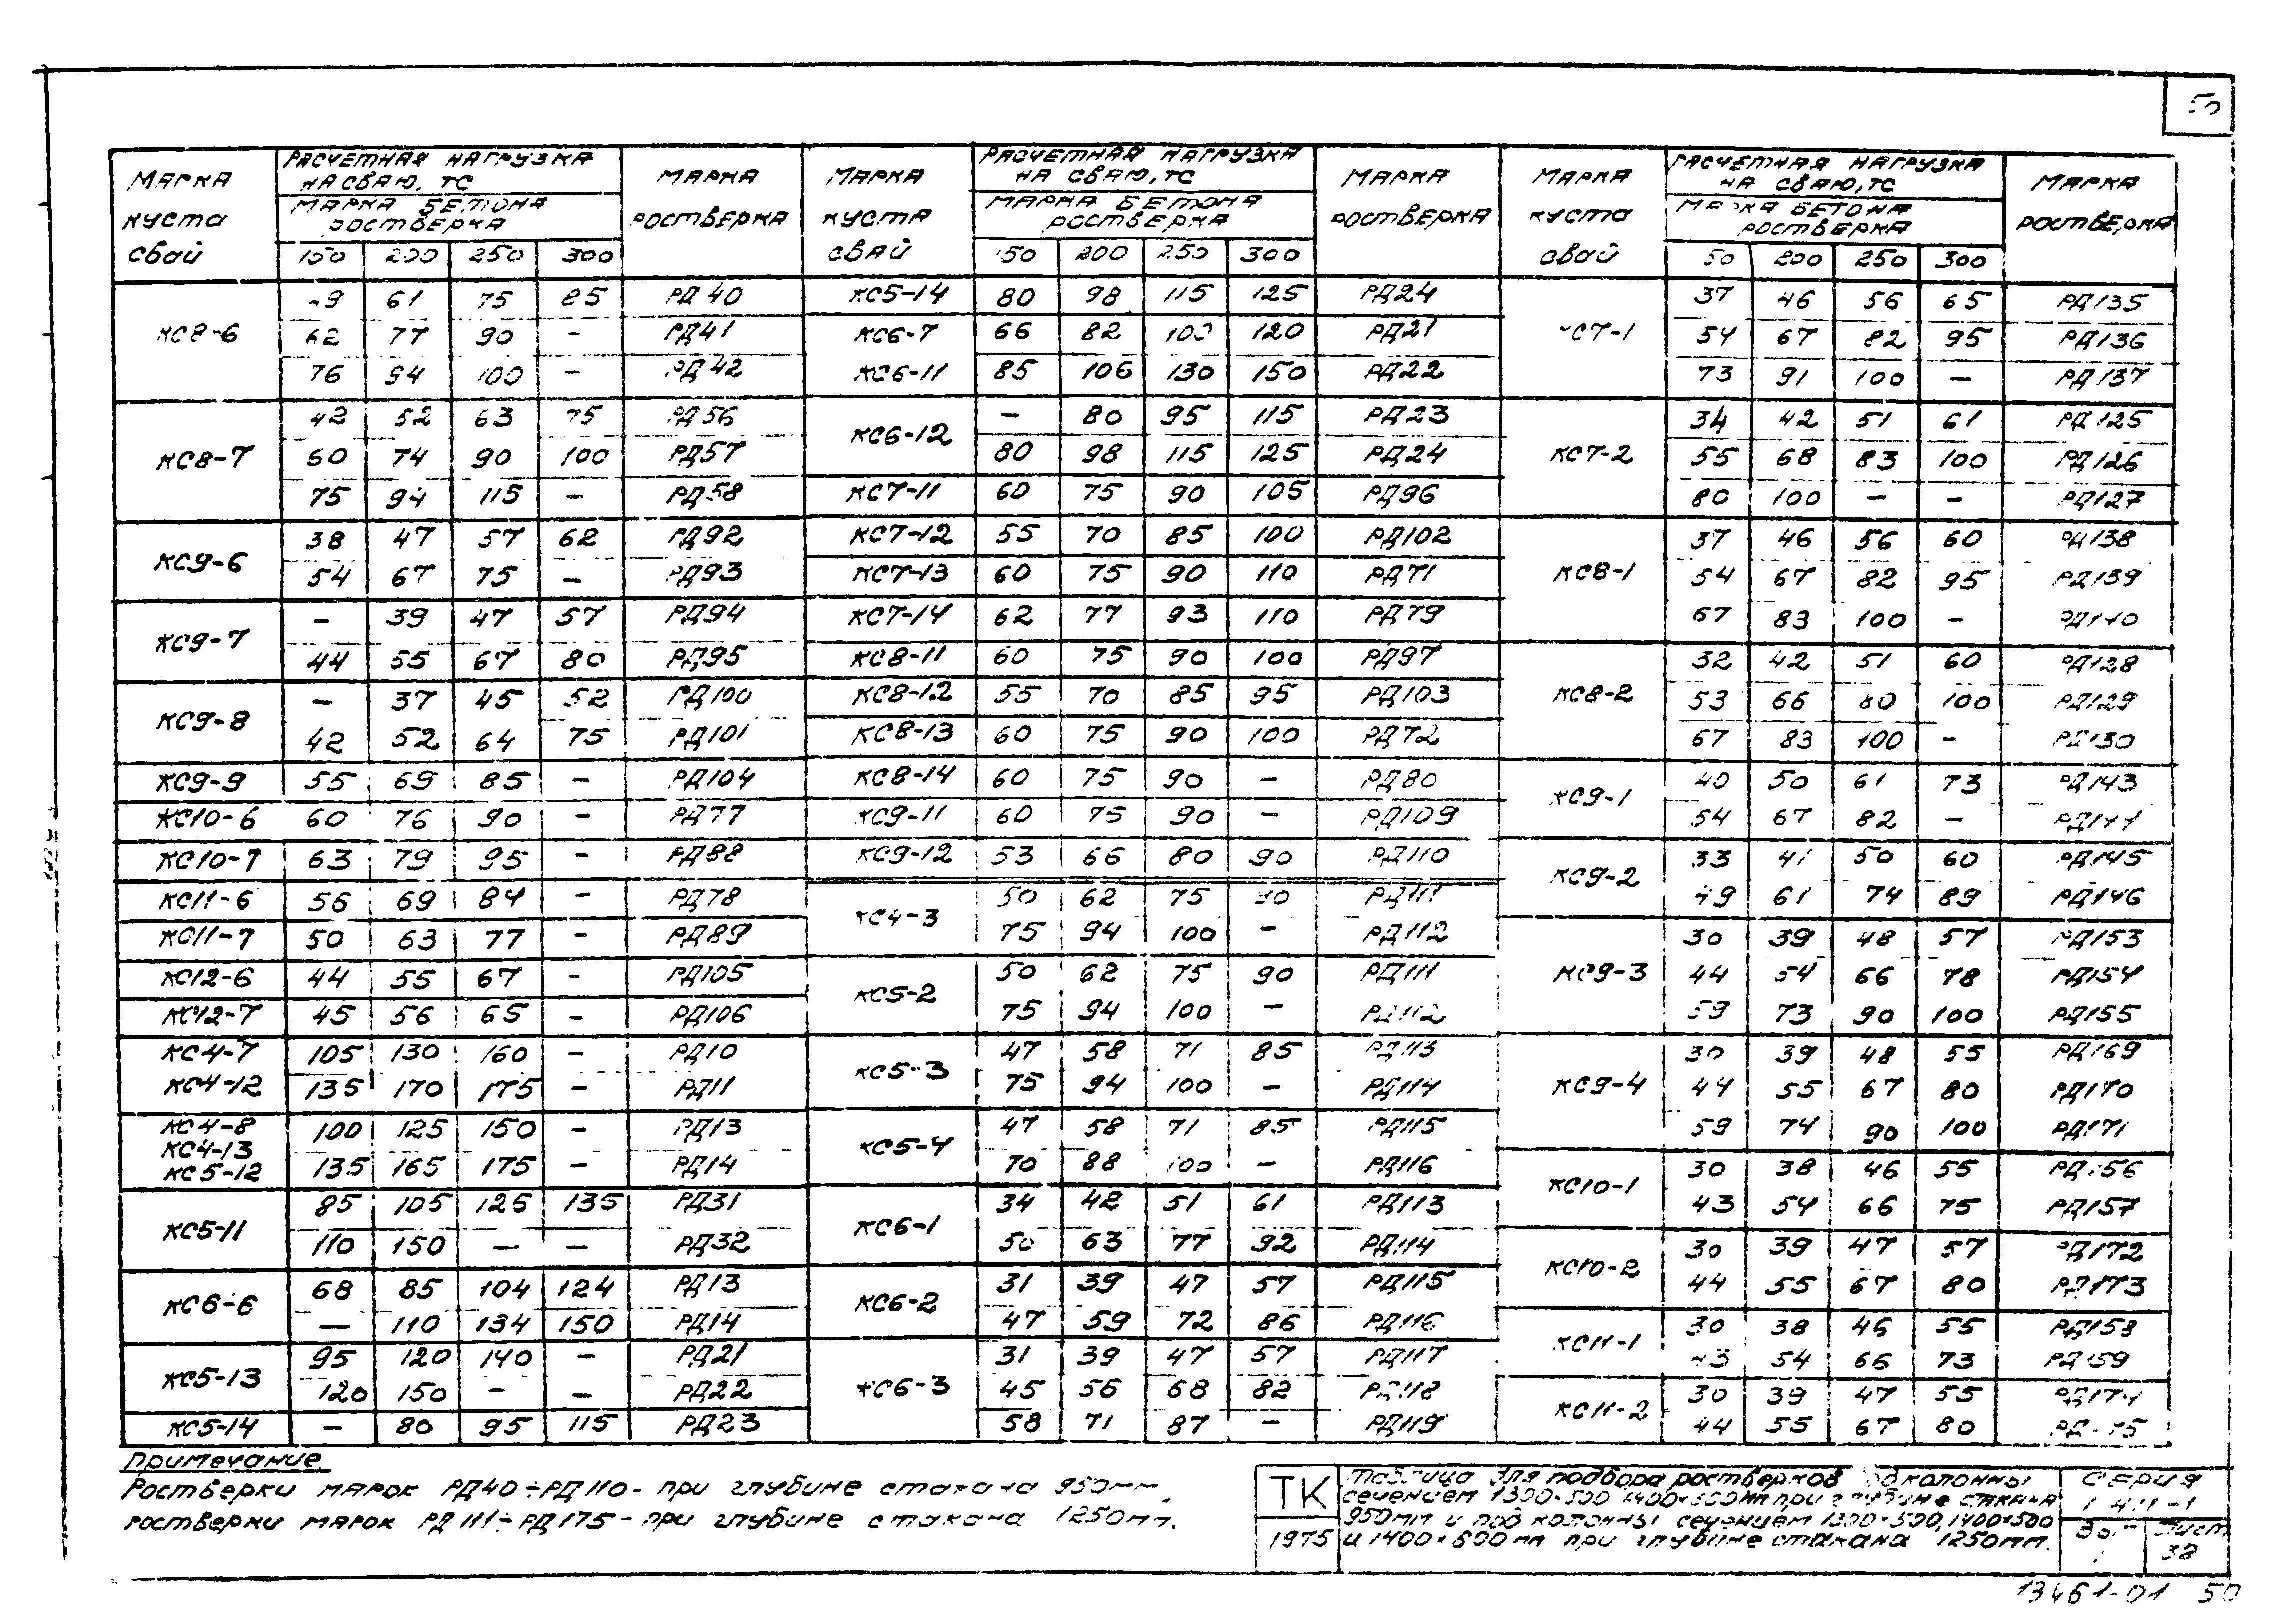 50
МАРКА КУСТА СВАЙ | РАСЧЕТНАЯ НАГРУЗКА НА СВАЮ, ТС | МАРКА РОСТВЕРКА | МАРКА КУСТА СВАЙ | РАСЧЕТНАЯ НАГРУЗКА НА СВАЮ, ТС | МАРКА РОСТВЕРКА | МАРКА КУСТА СВАЙ | РАСЧЕТНАЯ НАГРУЗКА НА СВАЮ, ТС | МАРКА РОСТВЕРКА
МАРКА БЕТОНА РОСТВЕРКА | МАРКА БЕТОНА РОСТВЕРКА | МАРКА БЕТОНА РОСТВЕРКА
150 200 250 300 | 150 200 250 300 | 50 200 250 300
КС8-6
9 61 75 85 РД40
62 77 90 - РД41
76 94 100 - РД42
КС8-7
42 52 63 75 РД56
60 74 90 100 РД57
75 94 115 - РД58
КС9-6
38 47 57 62 РД92
54 67 75 - РД93
КС9-7
- 39 47 57 РД94
44 55 67 80 РД95
КС9-8
- 37 45 52 РД100
42 52 64 75 РД101
КС9-9 55 69 85 - РД104
КС10-6 60 76 90 - РД77
КС10-7 63 79 95 - РД88
КС11-6 56 69 84 - РД78
КС11-7 50 63 77 - РД89
КС12-6 44 55 67 - РД105
КС12-7 45 56 65 - РД106
КС4-7 105 130 160 - РД10
КС4-12 135 170 175 - РД11
КС4-8
КС4-13
КС5-12
100 125 150 - РД13
135 165 175 - РД14
КС5-11
85 105 125 135 РД31
110 150 - - РД32
КС6-6
68 85 104 124 РД13
- 110 134 150 РД14
КС5-13
95 120 140 - РД21
120 150 - - РД22
КС5-14 - 80 95 115 РД23
КС5-14 80 98 115 125 РД24
КС6-7 66 82 100 120 РД21
КС6-11 85 106 130 150 РД22
КС6-12
- 80 95 115 РД23
80 98 115 125 РД24
КС7-11 60 75 90 105 РД96
КС7-12 55 70 85 100 РД102
КС7-13 60 75 90 110 РД71
КС7-14 62 77 93 110 РД79
КС8-11 60 75 90 100 РД97
КС8-12 55 70 85 95 РД103
КС8-13 60 75 90 100 РД72
КС8-14 60 75 90 - РД80
КС9-11 60 75 90 - РД109
КС9-12 53 66 80 90 РД110
КС4-3
50 62 75 90 РД111
75 94 100 - РД112
КС5-2
50 62 75 90 РД111
75 94 100 - РД112
КС5-3
47 58 71 85 РД113
75 94 100 - РД114
КС5-4
47 58 71 85 РД115
70 88 100 - РД116
КС6-1
34 42 51 61 РД113
50 63 77 92 РД114
КС6-2
31 39 47 57 РД115
47 59 72 86 РД116
КС6-3
31 39 47 57 РД117
45 56 68 82 РД118
58 71 87 - РД119
КС7-1
37 46 56 65 РД135
54 67 82 95 РД136
73 91 100 - РД137
КС7-2
34 42 51 61 РД125
55 68 83 100 РД126
80 100 - - РД127
КС8-1
37 46 56 60 РД138
54 67 82 95 РД139
67 83 100 - РД140
КС8-2
32 42 51 60 РД128
53 66 80 100 РД129
67 83 100 - РД130
КС9-1
40 50 61 73 РД143
54 67 82 - РД144
КС9-2
33 41 50 60 РД145
49 61 74 89 РД146
КС9-3
30 39 48 57 РД153
44 54 66 78 РД154
59 73 90 100 РД155
КС9-4
30 39 48 55 РД169
44 55 67 80 РД170
59 74 90 100 РД171
КС10-1
30 38 46 55 РД156
43 54 66 75 РД157
КС10-2
30 39 47 57 РД172
44 55 67 80 РД173
КС11-1
30 38 46 55 РД158
43 54 66 73 РД159
КС11-2
30 39 47 55 РД174
44 55 67 80
Примечание.
Ростверки марок РД40÷РД110 - при глубине стакана 950мм,
ростверки марок РД111÷РД175 - при глубине стакана 1250мм.
ТК
1975
Таблица для подбора ростверков под колонны
сечением 1300×500, 1400×500мм при глубине стакана
950мм и под колонны сечением 1300×500, 1400×500
и 1400×600мм при глубине стакана 1250мм.
СЕРИЯ
Лист
38
13461-01 50